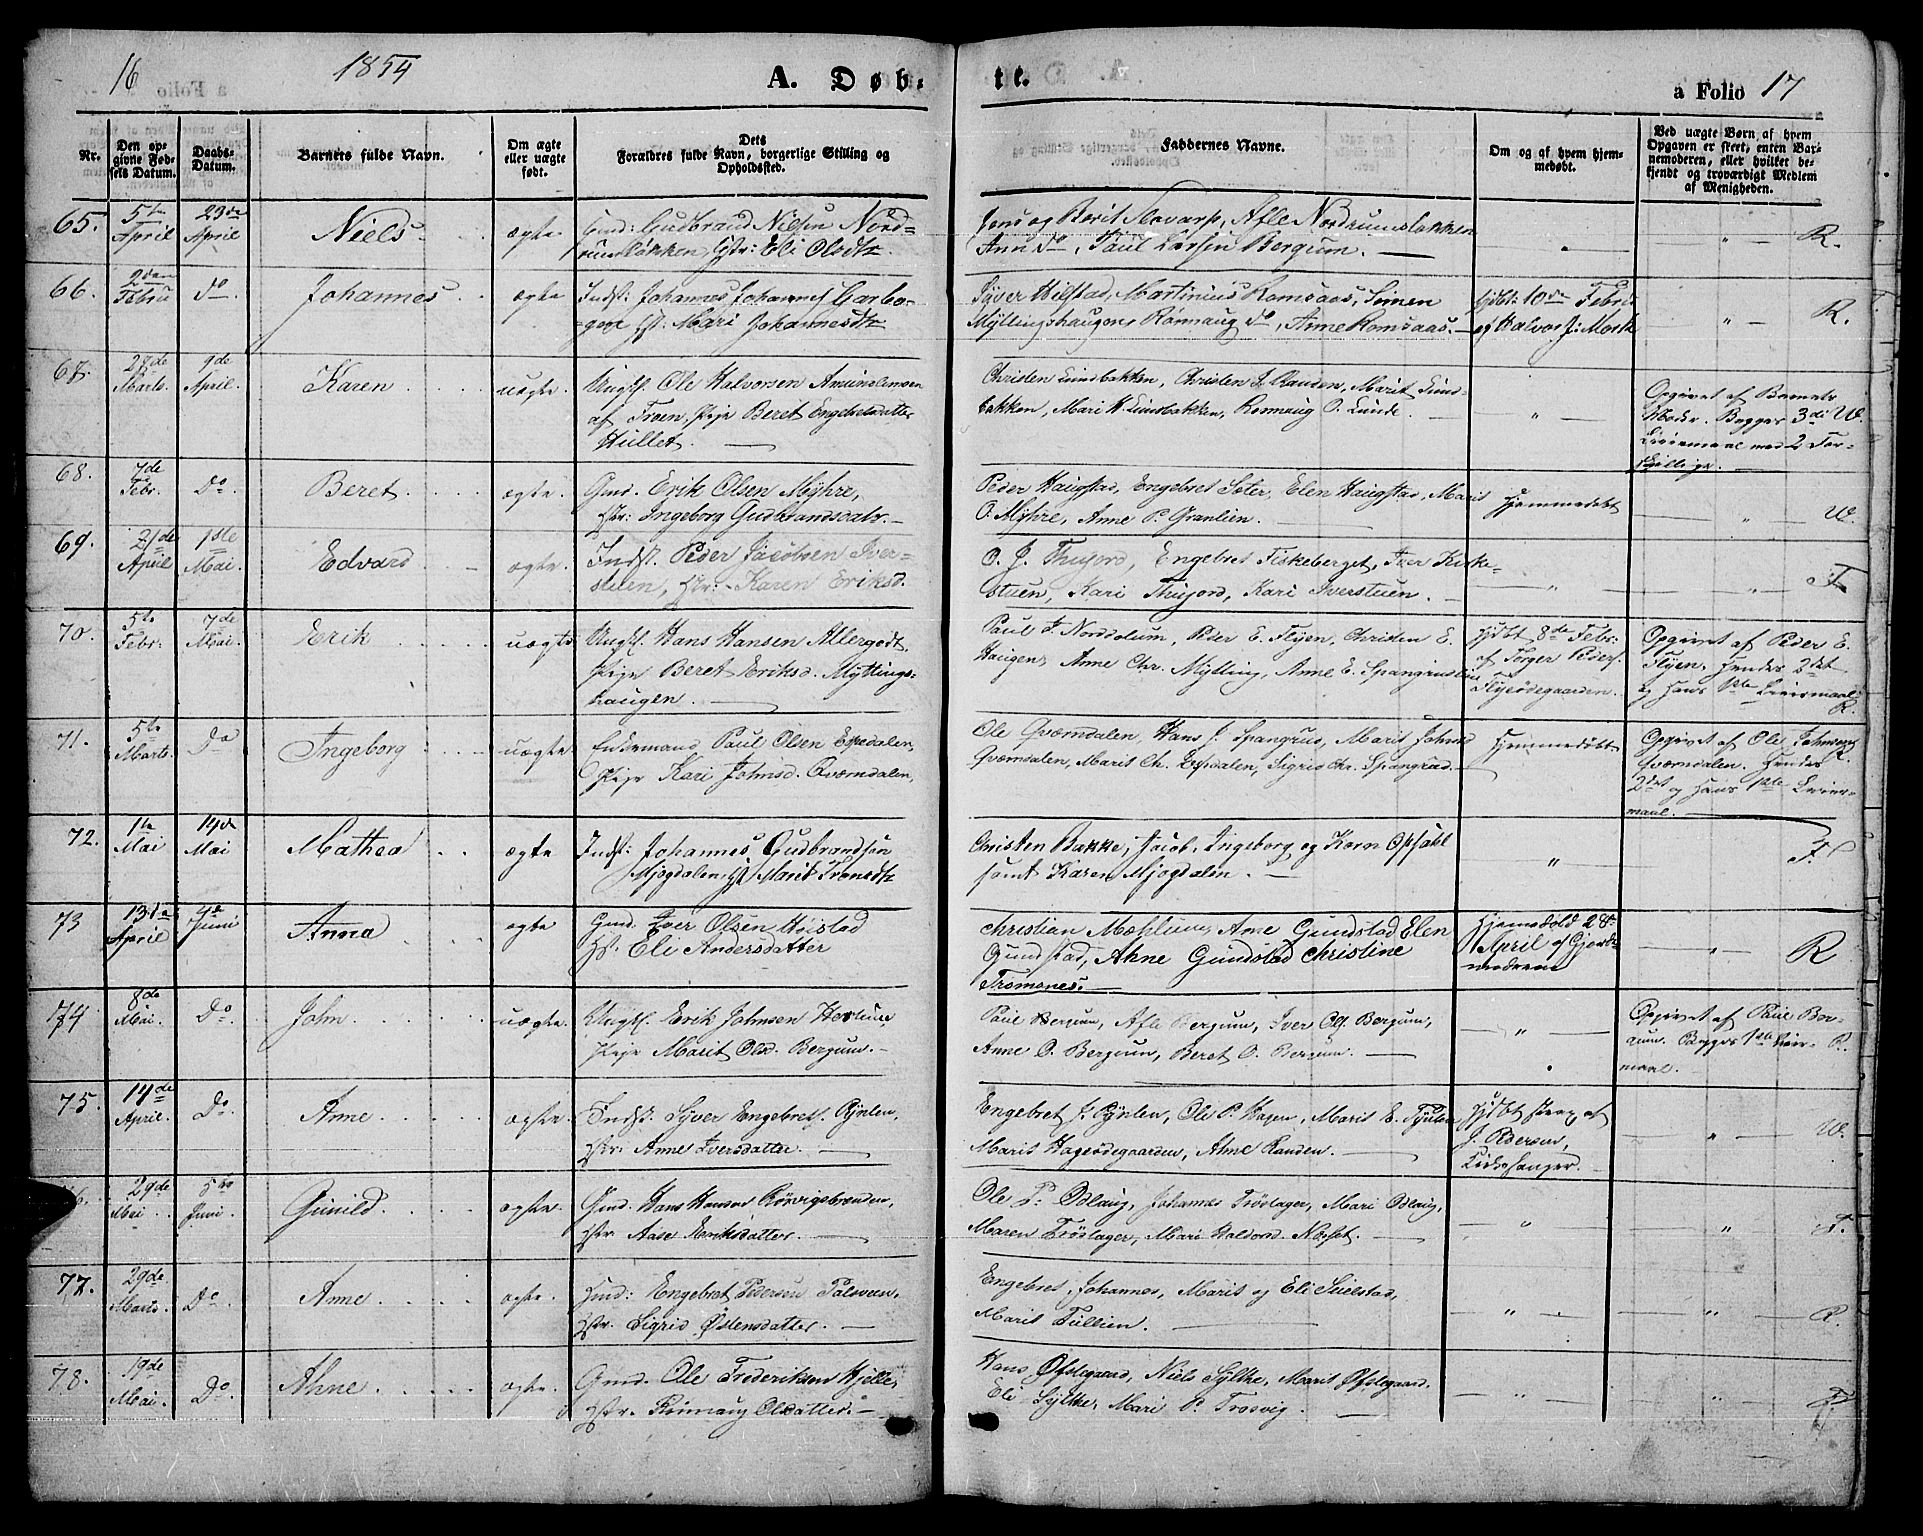 16 1854 A. Døb: te. a Folio 17
Nr. Den opgivne Fødsels Datum. Daabs-Datum. Barnets fulde Navn. Om ægte eller uægte født. Dets Forældres fulde Navn, borgerlige Stilling og Opholdssted. Faddernes Navne. Om og af hvem hjemmedøbt. Ved uægte Børn af hvem Opgaven er skeet, enten Barnemoderen, eller hvilket bekjendt og troværdigt Medlem af Menigheden.
65. 5te April 23de April Niels ægte Gmd: Gudbrand Nilsen Nord-
rumsløkken, Hstr: Eli Olsdtr.
Jens og Berit, Afle Nordrumsløkken
Anne Do, Paul Larsen Bergum. — " — R.
66. 2den Febru Do Johannes ægte Indst: Johannes Johannes Garbo-
gen Hst: Mari Johannesdtr
Syver Hilstad, Martinius Romsaas, Simen
Myllingshaugen, Rønnaug Do, Anne Romsaas. —
hjdbt: 10de Febr:
af Halvor J: Mork " — R.
67. 28de Marts. 9de April. Karen uægte. Ungk. Ole Halvorsen Amundsmoen
af Froen, Pige Beret Engebretsdatter
Hullet. —
Christen Lundbakken, Christen J. Randen, Marit Lund-
bakken, Mari H. Lundbakken, Rønnaug O. Lunde.
"
Opgivet af Barnets
Moder. Begges 3die W.
Leiermaal med 2 For-
skjellige. —
68. 7de Febr. Do. Beret. ægte. Gmd. Erik Olsen Myhre,
Hstr: Ingeborg Gudbrandsdatr. —
Peder Haugstad, Engebret Soter, Elen Haugstad, Marit
O. Myhre, Anne P. Granlien. —
Hjemmedøbt
— " — W.
69. 21de April 1ste Mai Edvard ægte. Indst. Peder Jacobsen Iver-
stuen, Hstr: Karen Eriksd.
O. J. Thujord, Engebret Fiskeberget, Iver Kirke-
stuen, Kari Thujord, Kari Iverstuen. — " — " — F.
70. 5te Febr: 7de Mai. Erik uægte Ungk. Hans Hansen Allergodt,
Pige Beret Eriksd. Myttings-
haugen. —
Paul J. Norddlum, Peder E. Flyen, Christen E.
Haugen, Anne Chr. Mytting, Anne E. Spangrudlien
Hjdbt 8de Febr:
af Torger Peders.
Flyeødegaarden.
Opgivet af Peder E.
Flyen. Hendes 2det
og Hans 1ste Leiermaal
R.
71. 5te Marts. Do Ingeborg uægte. Enkemand Paul Olsen Espedalen,
Pige Kari Johnsd. Qværndalen,
Ole Qværndalen, Hans J. Spangrud, Marit Johnsd
Qværndalen, Marit Ch. Espdalen, Sigrid Chr. Spangrud.
Hjemmedøbt.
Opgivet af Ole Johnsen
Qværndalen. Hendes R.
2det og Hans 1ste Leier-
maal. —
72. 1te Mai 14de Mai Mathea ægte Indst: Johannes Gudbrandsen
Mjogdalen, Hst Marit Tronsdtr
Christen Bakke, Jacob, Ingeborg og Karn Opsahl
samt Karen Mjogdalen. — " F.
73 13de April 4de Juni Anna ægte Gmd. Iver Olsen Høistad
Hst. Eli Andersdatter
Christian Mæhlum, Arne Gundstad Elen
Gundstad, Ahne Gundstad Christine
Tromsnes. —
Hjemedøbt 28de
April af Gjord-
moderen
— " — R
74 8de Mai. Do. John uægte. Ungk. Erik Johnsen
Pige Marit Olsd. Bergum. —
Paul Bergum, Afle Bergum, Iver Ols. Bergum,
Anne O. Bergum, Beret O. Bergum. —
"
Opgivet af Paul Ber-
gum. Begges 1ste Leier- R.
maal. —
75. 14de April. Do. Anne ægte. Indst. Syver Engebrets. Rynlen,
Hstr: Anne Iversdatter. —
Engebret J. Rynlen, Ole P. Hagen, Marit E. Fyllen,
Marit Hageødegaarden, Anne Randen. —
Hjdbt strax af
J. Pedersen,
Kirkesanger.
— " — W.
76. 29de Mai. 5te Juni. Gunild ægte. Gmd. Hans Hansen Rørvigsbrenden,
Hstr. Aase Eriksdatter. —
Ole P. Odlaug, Johannes Tröslager, Mari Odlaug,
Maren Tröslager, Mari Haldord. Næset. — " — " F.
77. 29de Marts. Do. Anne ægte. Huus: Engebret Pedersen Palsveen,
Hstr. Sigrid Østensdatter. —
Engebret, Johannes, Marit og Eli Sielstad,
Marit Tullien. — " — " — R.
78. 19de Mai. Do. Ahne ægte. Gmd. Ole Frederiksen Hjelle,
Hstr. Rønnaug Olsdatter. —
Hans Øfslegaard, Niels Sylthe, Marit Øfslegaard,
Eli Sylthe, Mari P. Trosvig. — " — " F.